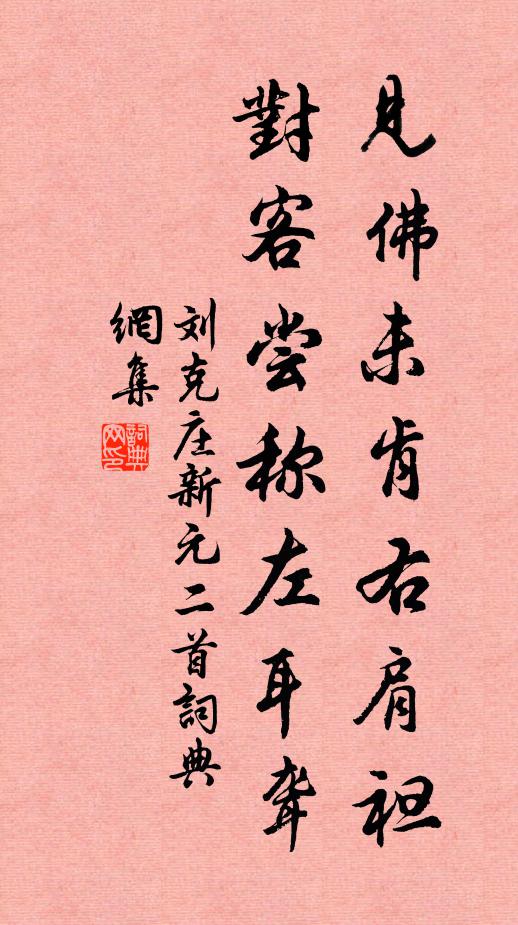 見佛未肯右肩袒
對客尝称左耳聋
刘克庄新元二首詞典
網集
詞典
网印